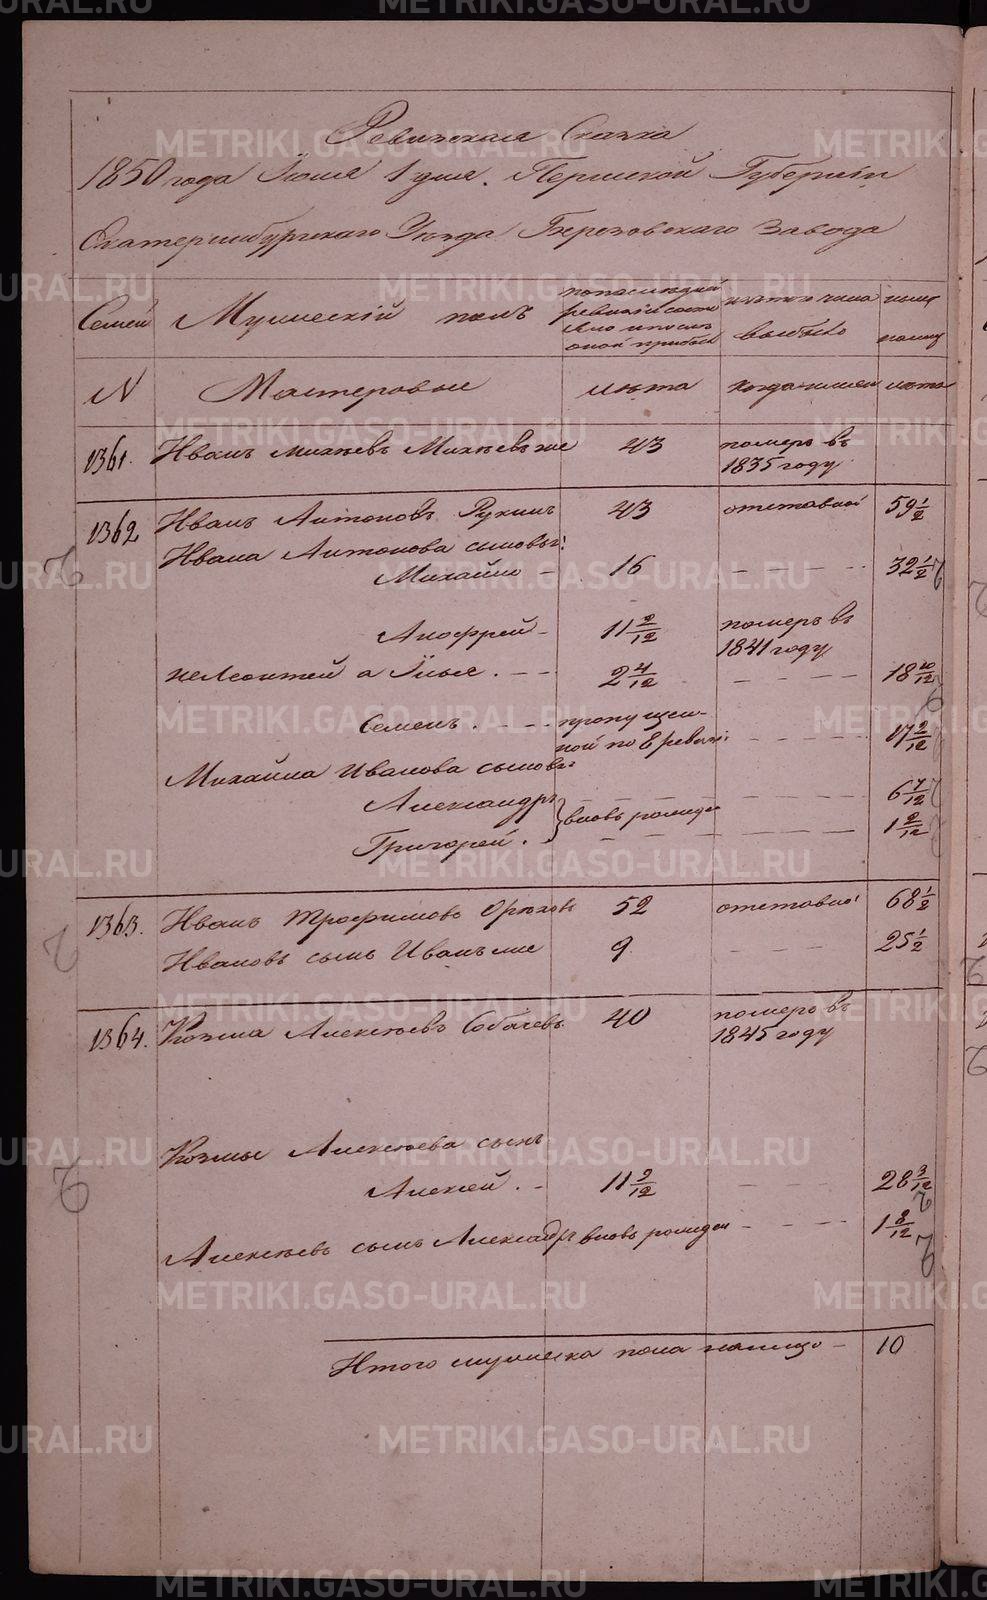 Ревизская Сказка
1850 года Июля 1 дня. Пермской Губернiи
Екатеринбургскаго Уезда Березовскаго Завода
Семей
Мужескiй полъ
по последней ревизiи состояло и после оной прибыло
изъ того числа выбыло
ныне налицо
N
Мастеровые
лета
когда именно
лета
1361. Иванъ Михеевъ Михеевъ же 43 померъ въ 1835 году
1362 Иванъ Антоновъ Рукинъ 43 отставной 59 1/2
Ивана Антонова сыновья:
Михайло - 16 - - - - 32 1/2
Анофрей - 11 2/12 померъ въ 1841 году
не Леонтей а Илья . - - 2 4/12 - - - - 18 10/12
Семенъ . - - - пропущенной по 8 ревизiи - - - - 17 2/12
Михайла Иванова сыновья:
Александръ - - - - 6 7/12
Григорей . вновь рождены - - - - 1 2/12
1363. Иванъ Трофимовъ Ореховъ 52 отставной 68 1/2
Ивановъ сынъ Иванъ же 9 - - - 25 1/2
1364. Козма Алексеевъ Собачевъ 40 померъ въ 1845 году
Козмы Алексеева сынъ
Алексей . - 11 9/12 - - - - 28 3/12
Алексеевъ сынъ Александръ вновь рожден - - - - 1 8/12
Итого мужеска пола налицо - 10
METRIKI.GASO-URAL.RU